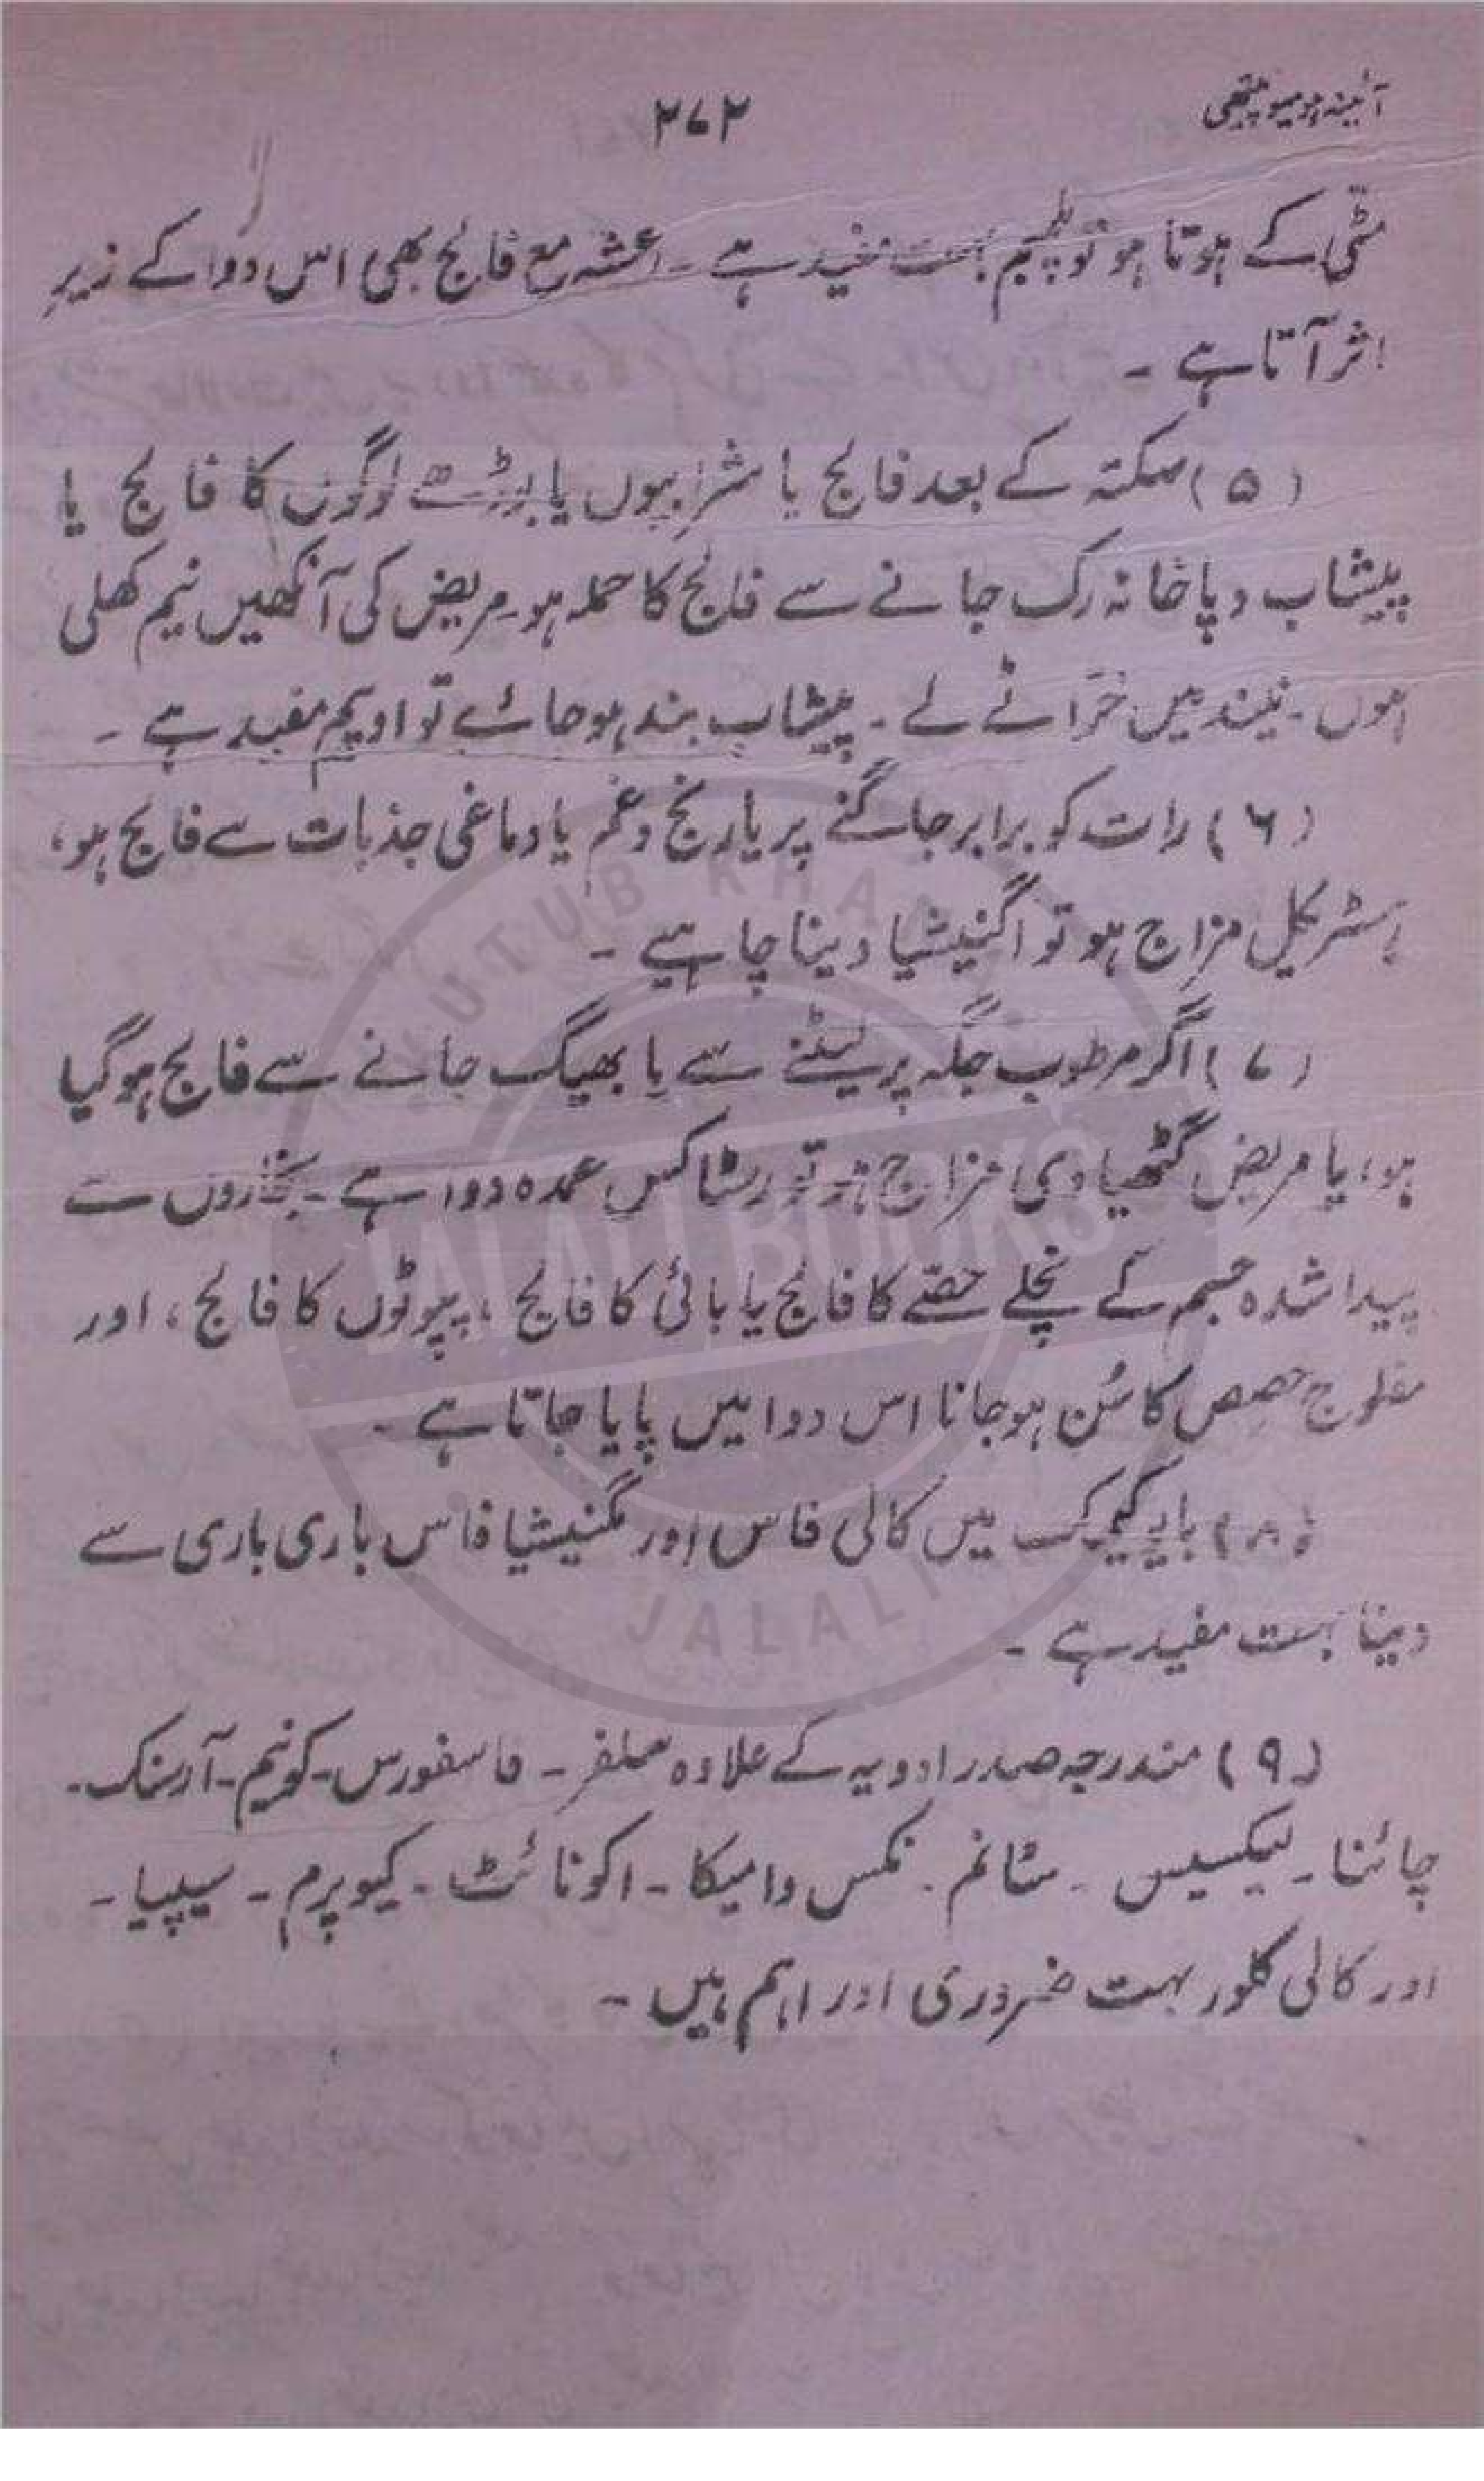 آئینہ ہومیوپیتھی
۲۷۲
مٹی کے ہوتا ہو تو پلمبم بہت مفید ہے ۔ رعشہ مع فالج بھی اس دوا کے زیر
اثر آتا ہے ۔
(۵) سکتہ کے بعد فالج یا شرابیوں یا بوڑھے لوگوں کا فالج یا
پیشاب و پاخانہ رک جانے سے فالج کا حملہ ہو۔ مریض کی آنکھیں نیم کھلی
ہوں ۔ نیند میں خراٹے لے ۔ پیشاب بند ہو جائے تو اوپیم مفید ہے ۔
(۶) رات کو برابر جاگنے پر یا رنج و غم یا دماغی جذبات سے فالج ہو،
ہسٹریکل مزاج ہو تو اگنیشیا دینا چاہیے ۔
(۷) اگر مرطوب جگہ پر لیٹنے سے یا بھیگ جانے سے فالج ہو گیا
ہو، یا مریض گٹھیاوی مزاج ہو تو رسٹاکس عمدہ دوا ہے ۔ بخاروں سے
پیدا شدہ جسم کے نچلے حصّے کا فالج یا بائی کا فالج ، پپوٹوں کا فالج ، اور
مفلوج حصص کا سُن ہو جانا اس دوا میں پایا جاتا ہے ۔
(۸) بایوکیمک میں کالی فاس اور مگنیشیا فاس باری باری سے
دینا بہت مفید ہے ۔
(۹) مندرجہ صدر ادویہ کے علاوہ سلفر ۔ فاسفورس ۔ کونیم ۔ آرسنک ۔
چائنا ۔ لیکیسس ۔ سٹانم ۔ نکس وامیکا ۔ اکونائٹ ۔ کیوپرم ۔ سیپیا ۔
اور کالی کلور بہت ضروری اور اہم ہیں ۔
KUTUB KHANA
JALALI BOOKS
JALALI